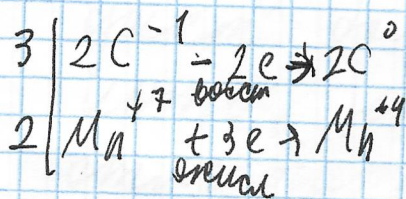 3 | 2C⁻¹ - 2e → 2C⁰
восст
2 | Mn⁺⁷ + 3e → Mn⁺⁴
окисл